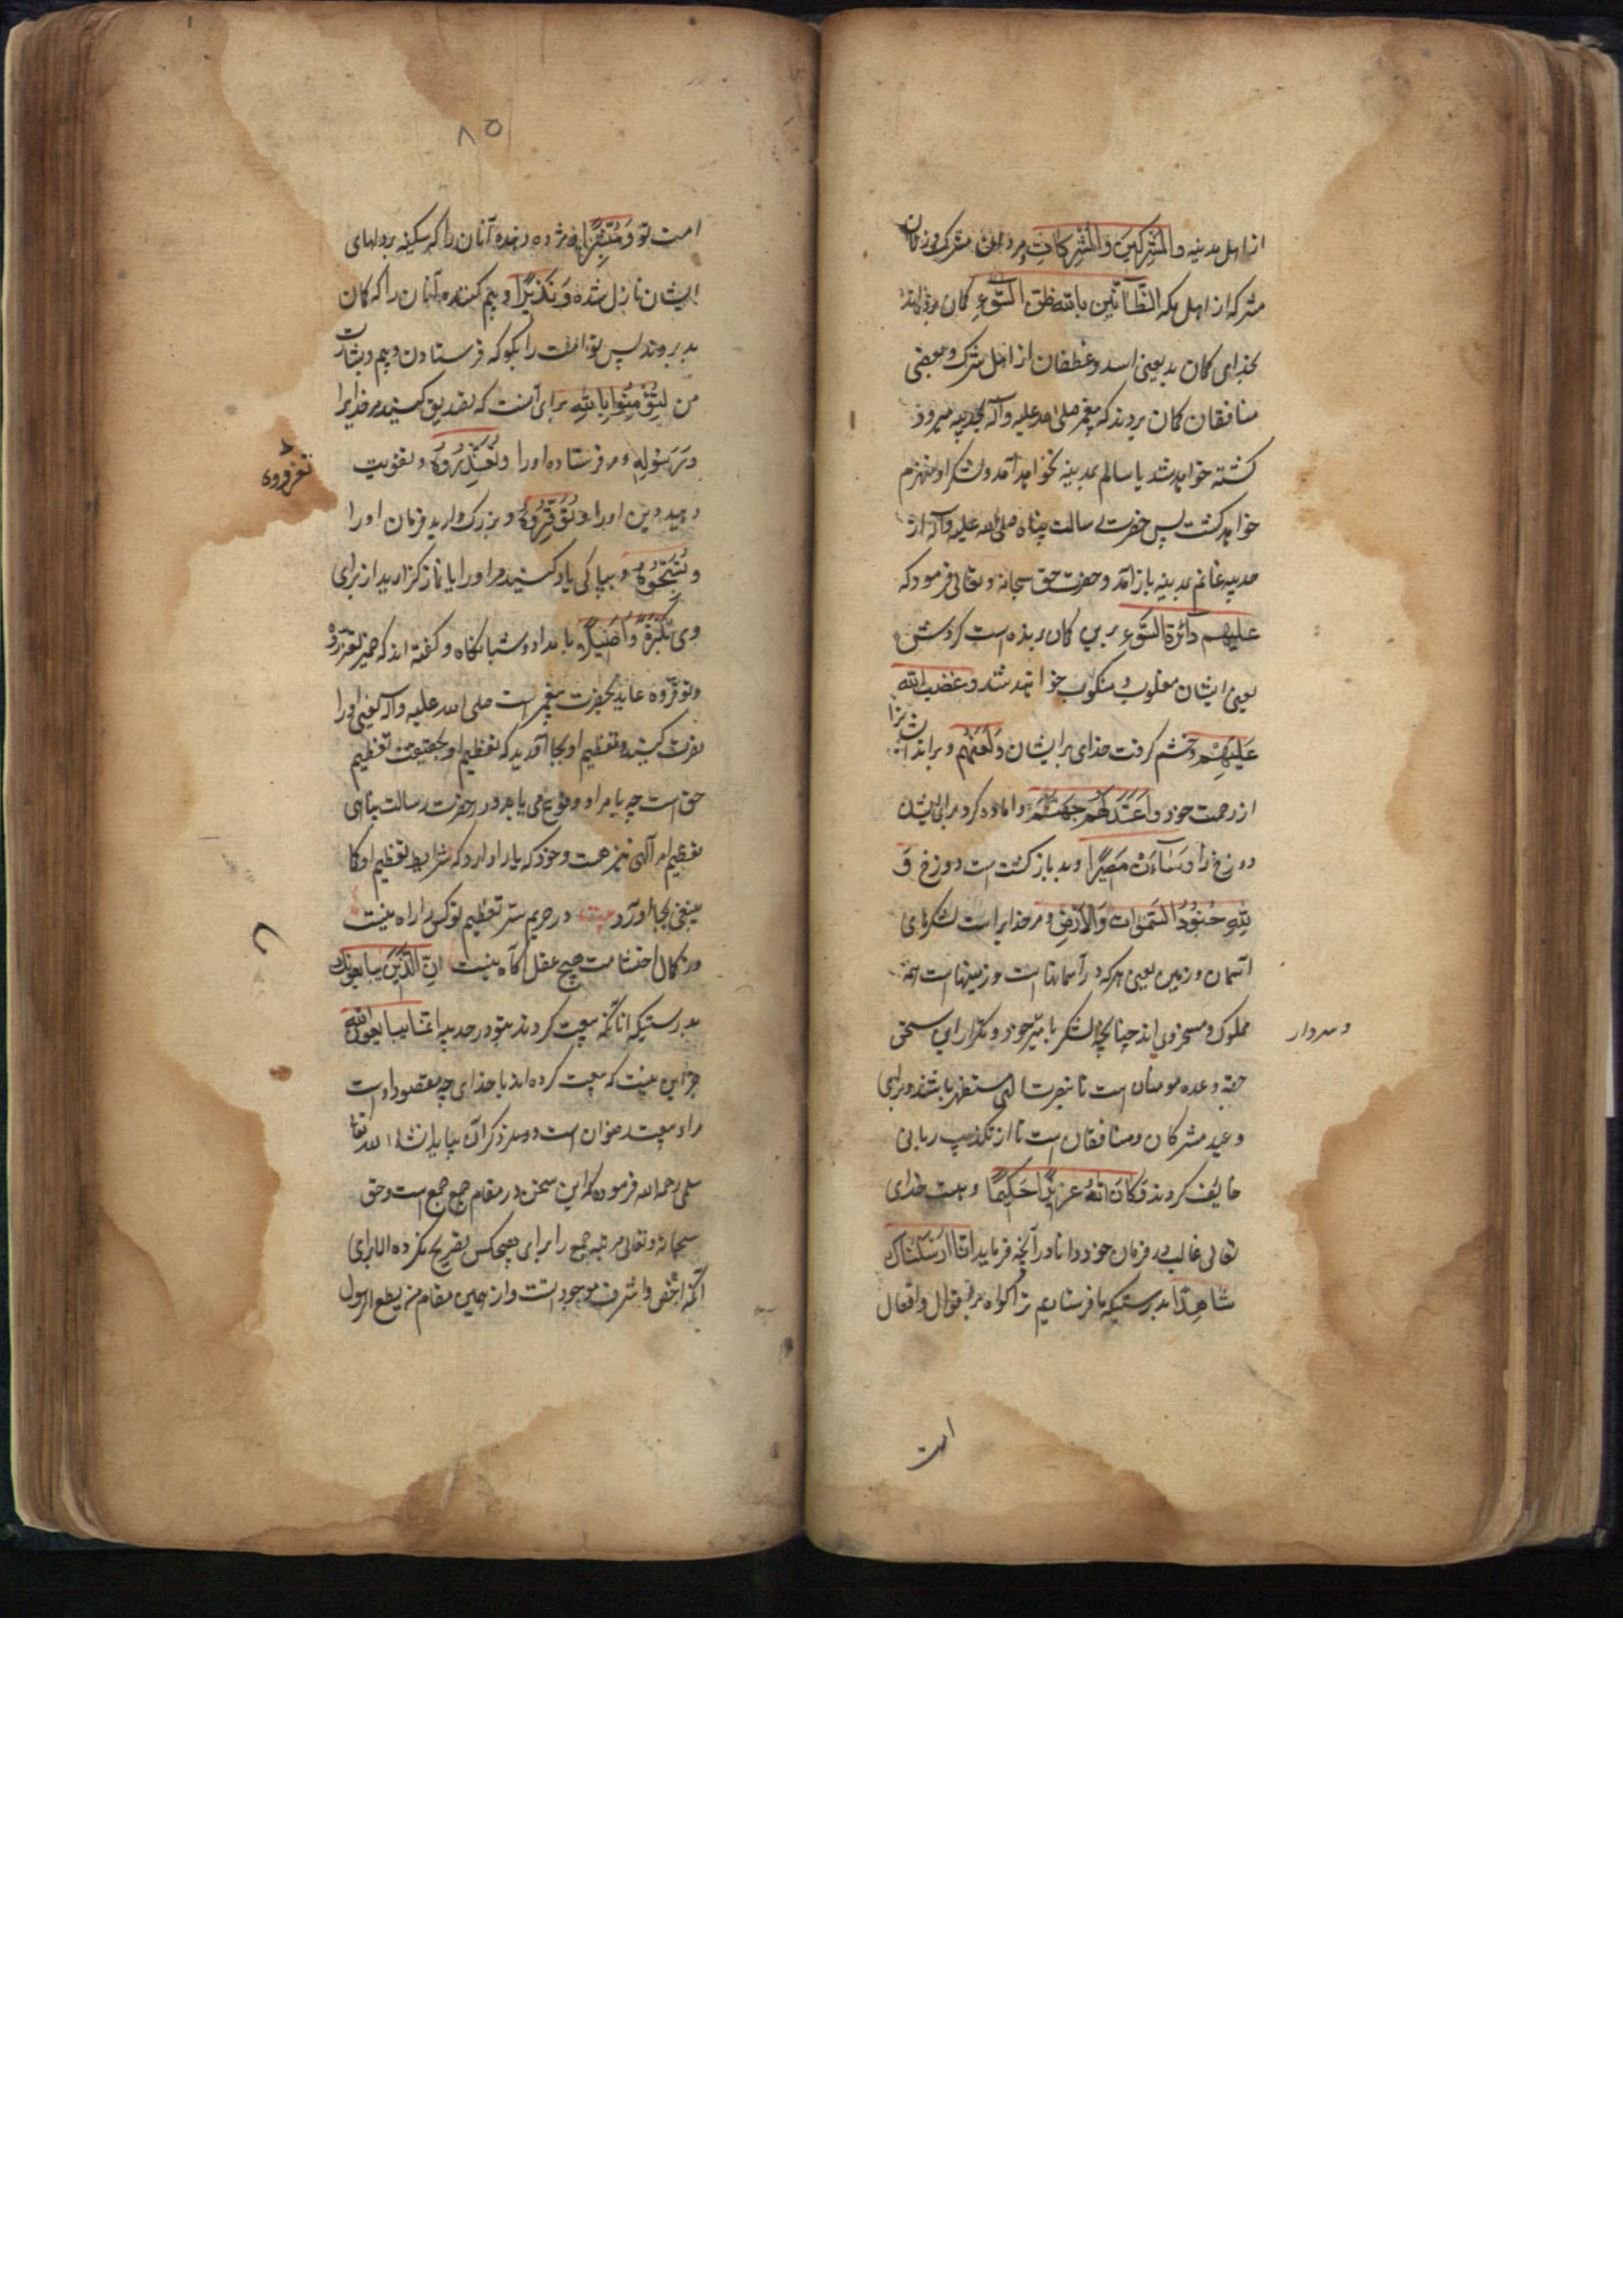 از اهل مدینه والمشرکین والمشرکات و مردان مشرک و زنان
مشرکه از اهل مکه الظانین بالله ظن السوء کمان برندکانند
بخدای کمان بد یعنی اسد و غطفان از اهل شرک و بعضی
منافقان کمان بردند که پیغمبر صلی الله علیه وآله بحدیبیه میرود
کشته خواهد شد یا سالم بمدینه نخواهد آمد و لشکر او منهزم
خواهد کشت پس حضرت رسالت پناه صلی الله علیه وآله از
حدیبیه غانم بمدینه باز آمد و حضرت حق سبحانه و تعالی فرمود که
علیهم دائرة السوء برین کمان برنده است کردش
یعنی ایشان مغلوب و منکوب خواهند شد و غضب الله
علیهم و خشم کرفت خدای بر ایشان ولعنهم و براند ایشانرا
از رحمت خود واعد لهم جهنم و اماده کرد برای ایشان
دوزخ را وساءت مصیرا و بد بازکشت است دوزخ و
لله جنود السموات والارض و مر خدایراست لشکرهای
آسمان و زمین یعنی هرکه در آسمانها است و زمینها است همه
مملوک و مسخر وی اند چنانچه لشکر با میر خود و تکرار این سخن
و سردار
جهة وعده مومنان است تا بنصرت الهی مستظهر باشند و برای
وعید مشرکان و منافقان است تا از تکذیب ربانی
خایف کردند وکان الله عزیزا حکیما و هست خدای
تعالی غالب در فرمان خود دانا در آنچه فرماید انا ارسلناک
شاهدا بدرستیکه ما فرستادیم ترا کواه بر اقوال و افعال
امت
۸۵
امت تو ومبشرا و مژده دهنده آنان را که سکینه بر دلهای
ایشان نازل شده ونذیرا و بیم کننده آنان را که کمان
بد بردند پس تو امت را بکو که فرستادن و بیم و بشارت
من لتؤمنوا بالله برای آنست که تصدیق کنید مر خدایرا
ورسوله و مر فرستاده اورا وتعزروه و تقویت
تعزروه
دهید دین اورا وتوقروه و بزرک دارید فرمان اورا
وتسبحوه و بپاکی یاد کنید مر اورا یا نماز کزارید از برای
وی بکرة واصیلا بامداد و شبانکاه و کفته اند که ضمیر تعزروه
وتوقروه عاید بحضرت پیغمبر است صلی الله علیه وآله یعنی اورا
نصرت کنید و تعظیم او بجا آورید که تعظیم او بحقیقت تعظیم
حق است چه بامر او وقوع می یابد و در حضرت رسالت پناهی
تعظیم امر آلهی نیز هست و خود که یارا دارد که شرایط تعظیم او کما
ینبغی بجا آورد بیت در حریم ستر تعظیم تو کس را راه نیست
وز کمال احتشامت هیچ عقل آکاه نیست ان الذین یبایعونک
بدرستیکه انانکه بیعت کردند بتو در حدیبیه انما یبایعون الله
جز این نیست که بیعت کرده اند با خدای چه مقصود اوست
مراد بیعت رضوان است و ذکر آن بیاید انشاء الله تعالی
سلمی رحمه الله فرموده که این سخن در مقام جمع جمع است و حق
سبحانه و تعالی مرتبه جمع را برای هیچکس تصریح نکرده الا برای
آنکه اخص و اشرف موجودات است و از همین مقام من یطع الرسول